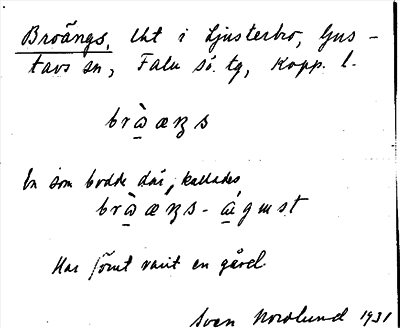 Broängs, Uht i Ljusterbro, Gus-
tavs sn, Falu sö. tg, Kopp. l.
bràæŋs
En som bodde där, kallades
bràæŋs-águst
Har förut varit en gård
Sven Nordlund 1931